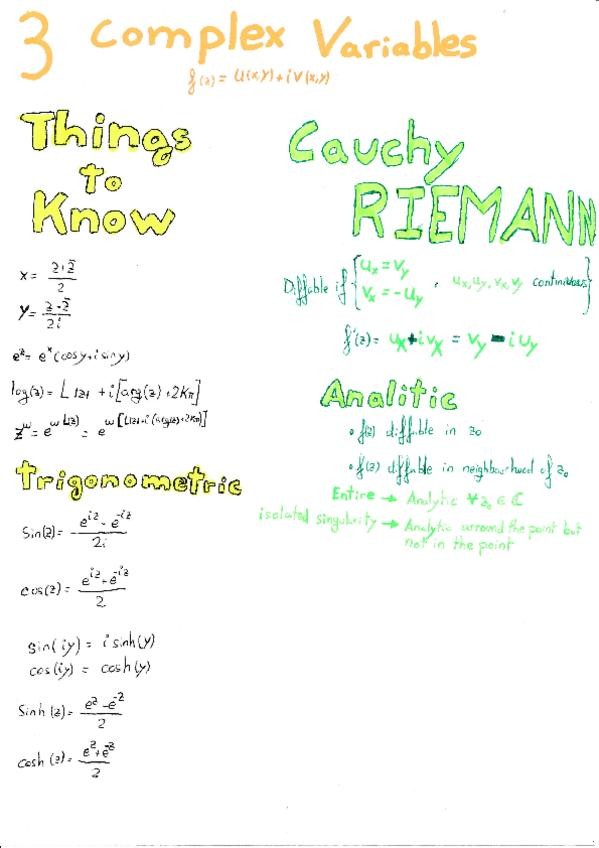 3 Complex Variables
f(z) = u(x,y) + i v(x,y)
Things
to
Know
x = z+z̄/2
y = z-z̄/2i
e^z = e^x (cosy + i siny)
log(z) = L|z| + i[arg(z) + 2kπ]
z^w = e^(w L(z)) = e^(w[L|z|+i(arg(z)+2kπ)])
Trigonometric
Sin(z) = e^(iz) - e^(-iz)/2i
cos(z) = e^(iz) + e^(-iz)/2
sin(iy) = i sinh(y)
cos(iy) = cosh(y)
Sinh(z) = e^z - e^(-z)/2
cosh(z) = e^z + e^(-z)/2
Cauchy
RIEMANN
Diffable if { u_x = v_y
v_x = -u_y , u_x, u_y, v_x, v_y continuous }
f'(z) = u_x + i v_x = v_y - i u_y
Analitic
• f(z) diffable in z_0
• f(z) diffable in neighbourhead of z_0
Entire → Analytic ∀ z_0 ∈ ℂ
isolated singularity → Analytic arround the point but
not in the point